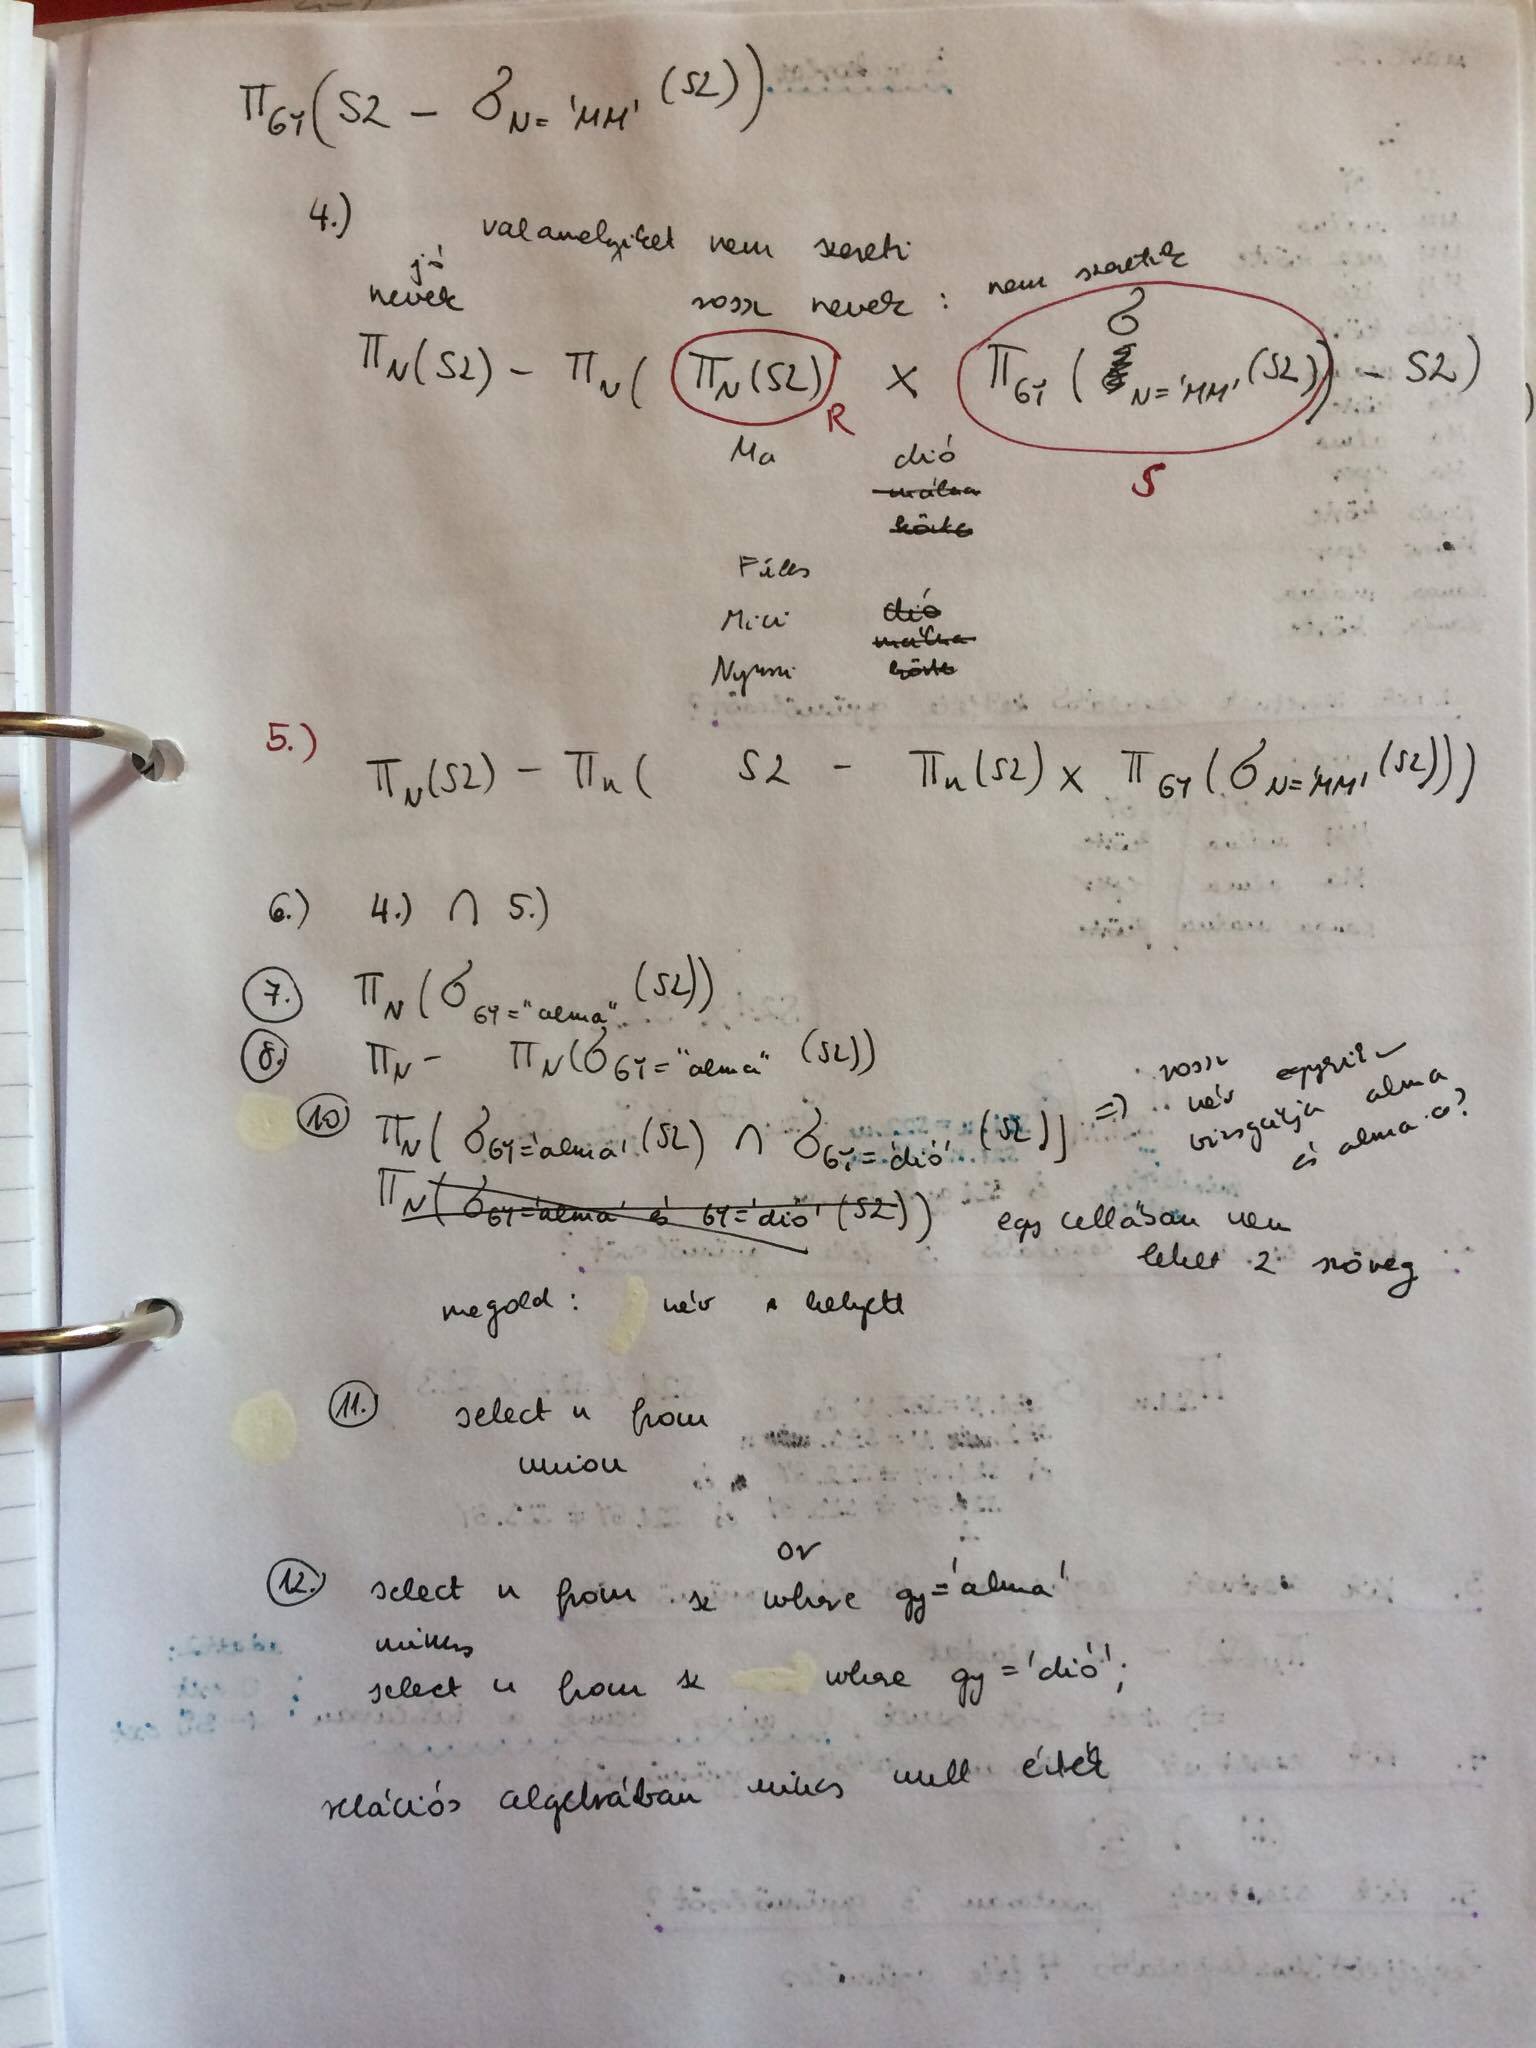 Π_GY(SZ − σ_N='MM' (SZ))
4.) valamelyiket nem szereti
jó
nevek rossz nevek : nem szeretik
Π_N(SZ) − Π_N( Π_N(SZ) × Π_GY( σ_N='MM' (SZ)) − SZ)
R
S
Ma dió
málna
körte
Füles
Mici dió
málna
Nyuszi körte
5.) Π_N(SZ) − Π_n( SZ − Π_n(SZ) × Π_GY(σ_N='MM' (SZ)))
6.) 4.) ∩ 5.)
7. Π_N(σ_GY="alma" (SZ))
8. Π_N − Π_N(σ_GY="alma" (SZ))
10 Π_N( σ_GY='alma' (SZ) ∩ σ_GY='dió' (SZ)) ⇒ rossz
név
vizsgálja alma
és alma
Π_N( σ_GY='alma' és GY='dió' (SZ)) egy cellában nem
lehet 2 szöveg
megold : név helyett
11. select n from
union
or
12. select n from sz where gy='alma'
minus
select n from sz where gy='dió';
relációs algebrában nincs null érték